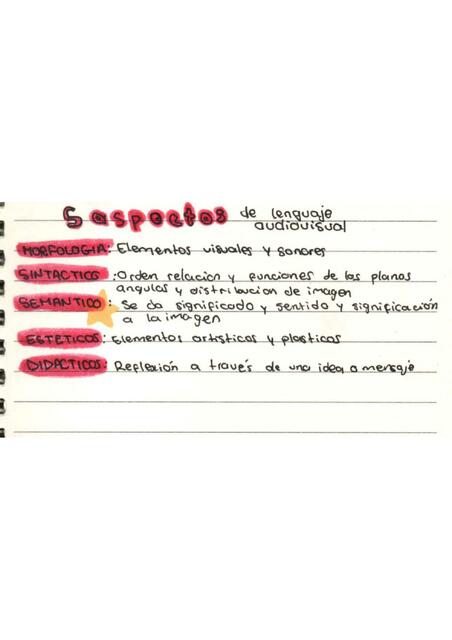 5 aspectos de lenguaje
audiovisual
MORFOLOGIA: Elementos visuales y sonores
SINTACTICOS: Orden relacion y funciones de los planos
angulos y distribucion de imagen
SEMANTICO: Se da significado y sentido y significación
a la imagen
ESTETICOS: Elementos artisticos y plasticos
DIDACTICOS: Reflexión a través de una idea o mensaje